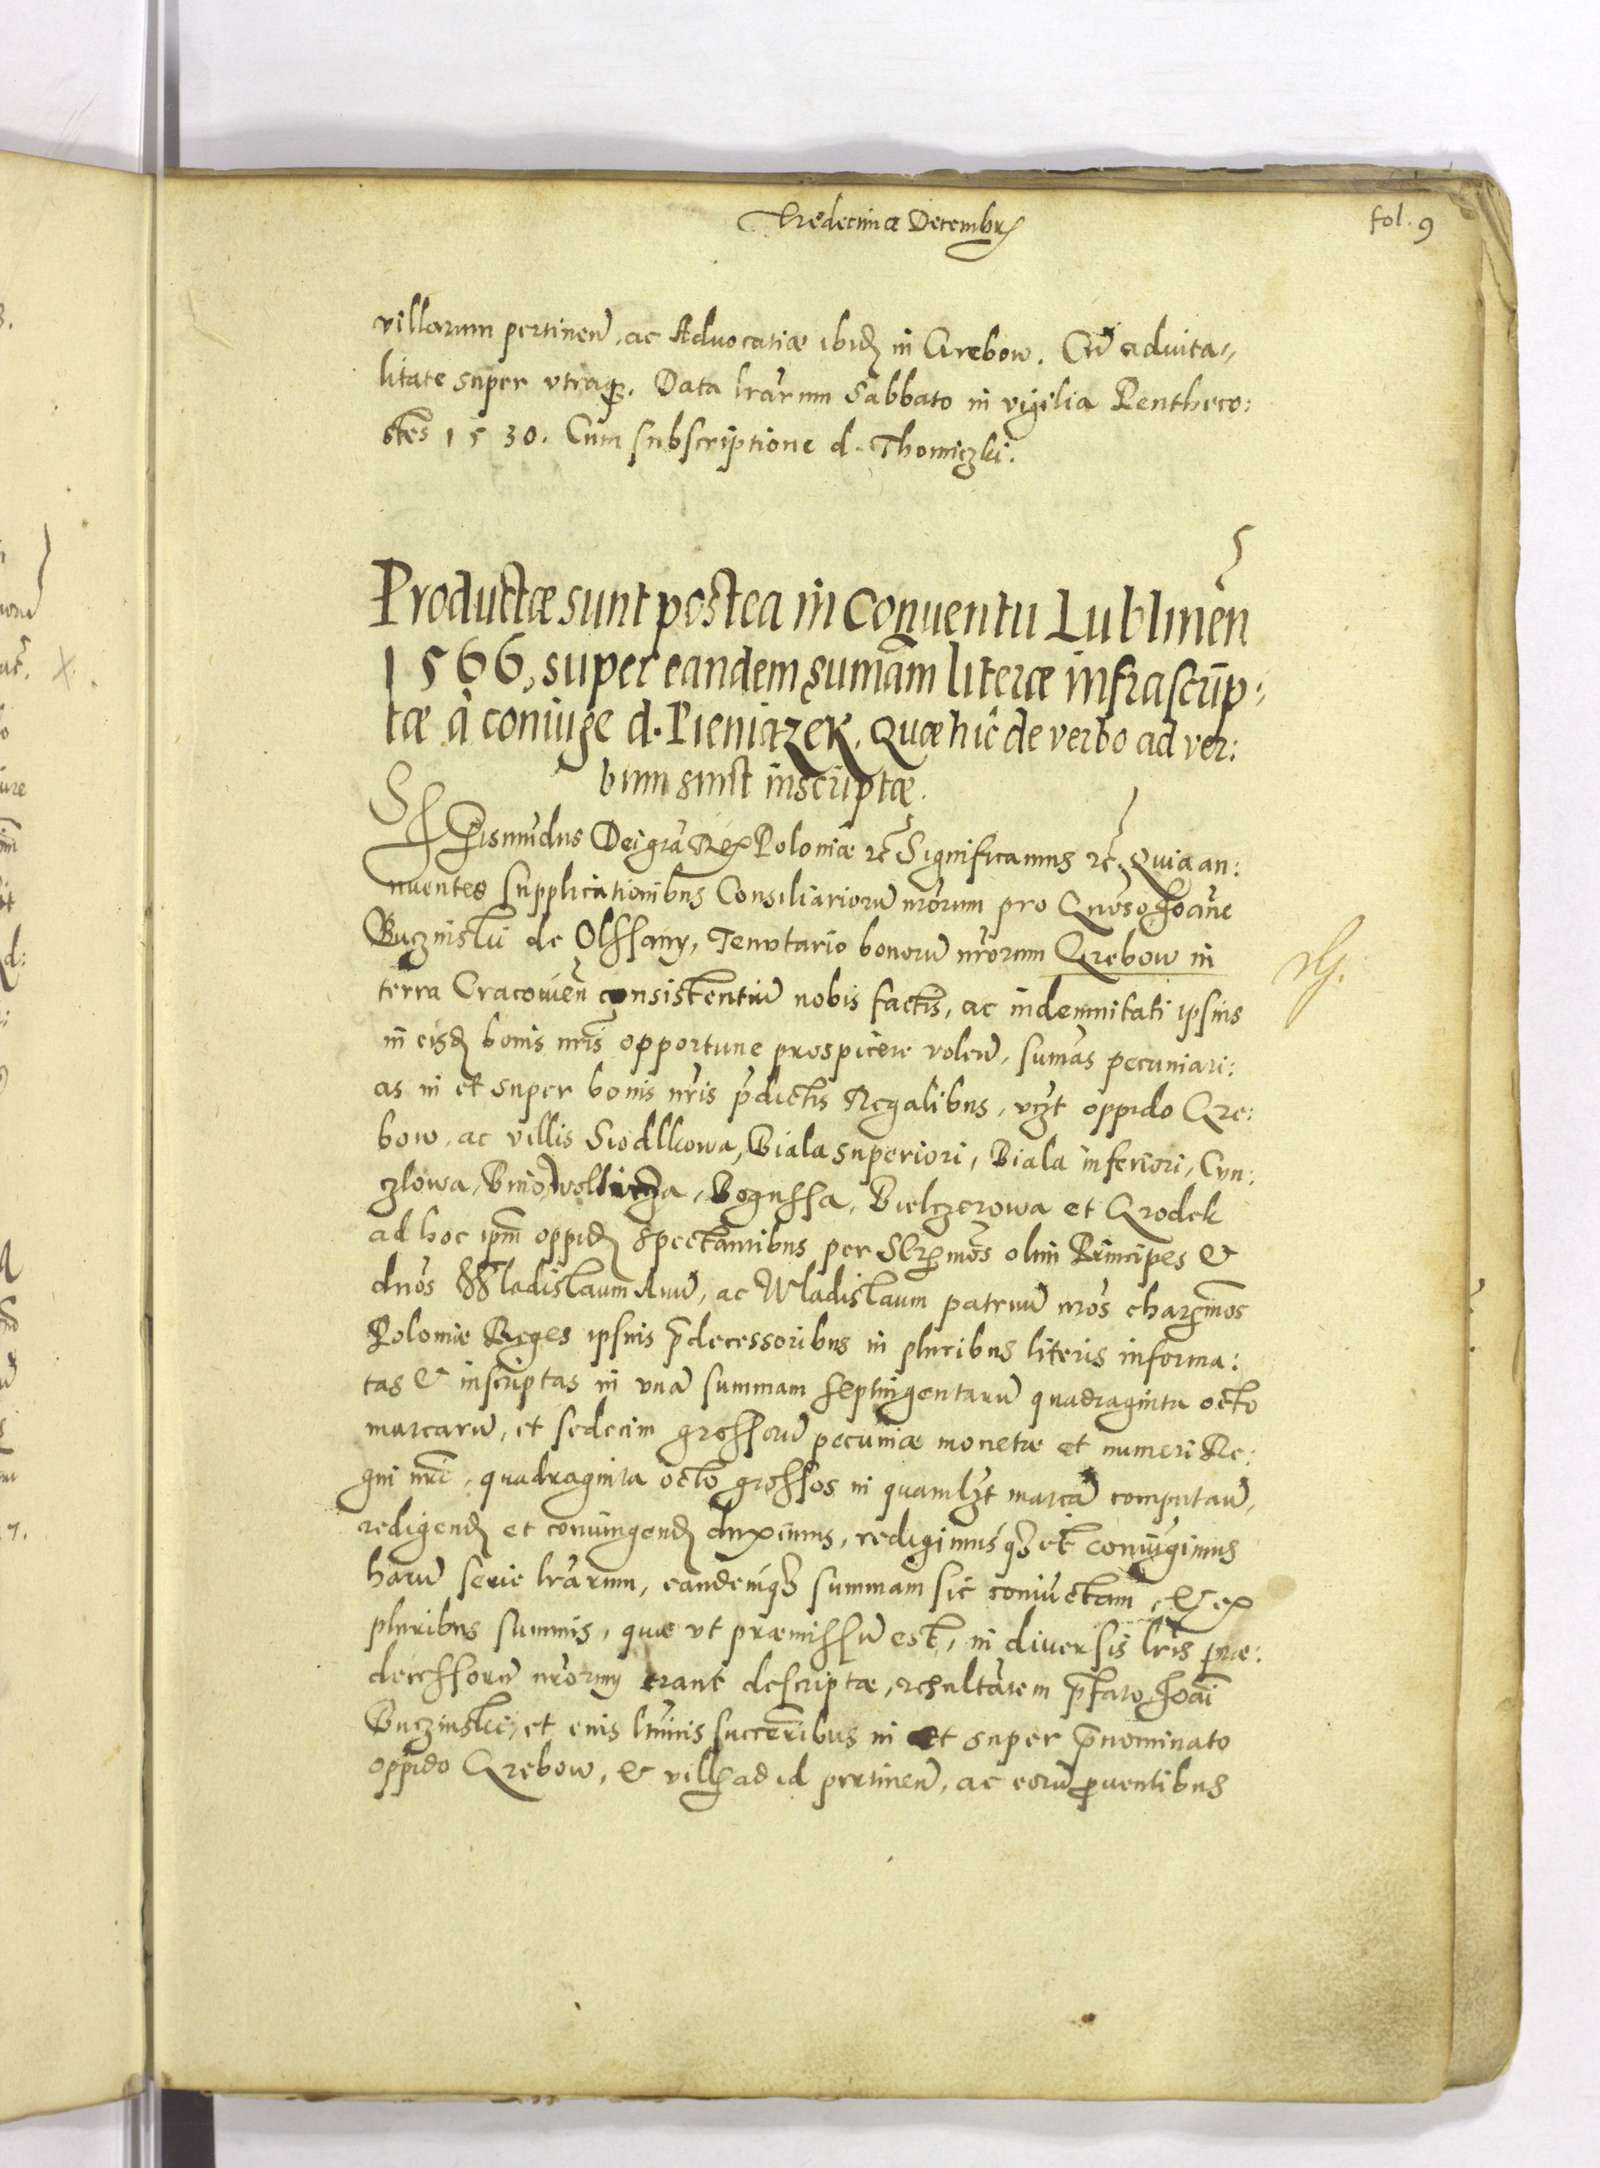 Tredecima Decembris
fol. 9
villarum pertinen̄, ac Aduocatiæ ibidē in Grebow. Cū aduita-
litate super vtraqꝫ. Data lrārum Sabbato in vigilia Pentheco:
stes 1530. Cum subscriptione d. Thomiczki.
Productæ sunt postea in Conuentu Lublinēn
1566, super eandem sumām literæ infrascrip-
tæ à coniuge d. Pieniązek. Quæ hîc de verbo ad ver:
bum sunt inscriptæ.
Sigismūdus Dei grā Rex Poloniæ ꝛc̄ Significamus ꝛc̄. Quia an:
nuentes supplicationibus Consiliariorū nrōrum pro Gnōso Joāne
Buczinski de Olssany, Tenutario bonorū nrōrum Grebow in
terra Cracouiēn consistentiū nobis factis, ac indemnitati ipsius
in eisdē bonis nrīs opportune prospicere volen̄, sumās pecuniari:
as in et super bonis nrīs p̄dictis Regalibus, vizt oppido Gre:
bow, ac villis Siodlkowa, Biala superiori, Biala inferiori, Cyn:
czlowa, Bino, Bogussa, Bielczerowa et Grodek
ad hoc ipm̄ oppidū spectantibus per Serm̄os olim Principes &
dnōs Wladislaum Auū, ac Wladislaum patruū nrōs charissm̄os
Poloniæ Reges ipsius p̄decessoribus in pluribus literis informa:
tas & inscriptas in vnā summam septingentarū quadraginta octo
marcarū, et sedecim grossorū pecuniæ monetæ et numeri Re:
gni nrī, quadraginta octo grossos in quamlizt marcā computan̄,
redigendū et coniungendū duximus, redigimusqꝫ et coniūgimus
harū serie lrārum, eandemqꝫ summam sic coniūctam, & ex
pluribus summis, quæ vt præmissū est, in diuersis lrīs præ:
decessorū nrōrum erant descriptæ, resultātem p̄fato Joāni
Buczinski, et eius ltīmis succesrībus in et super p̄nominato
oppido Grebow, & villis ad id pertinen̄, ac eorū prouentibus